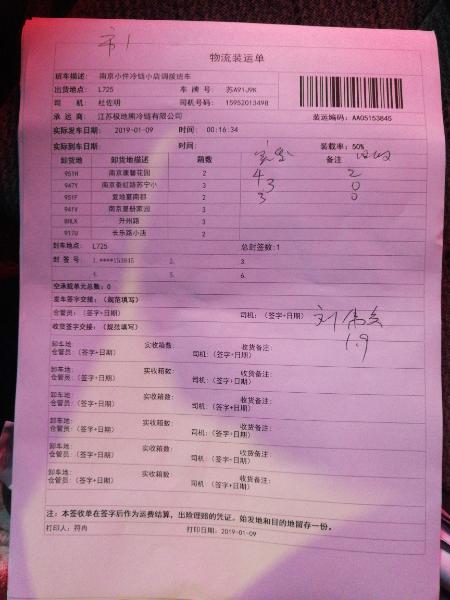 物流装运单
班车描述: 南京小件冷链小店调拨班车
出货地点: L725 车 牌 号: 苏A91J9K
司 机: 杜佐明 司机号码: 15952013498
承 运 商: 江苏极地熊冷链有限公司 装运编码: AA05153845
实际发车日期: 2019-01-09 时间: 00:16:34
实际到车日期: 时间: 装载率: 50%
卸货地 卸货地描述 箱数 备注
951H 南京康馨花园 2 4 2
947Y 南京秦虹路苏宁小 3 3 0
951F 夏南都 2 3 0
941V 南京夏册家园 3
8HLX 升州路 3
917U 长乐路小店 2
封车地点: L725 总封签数:1
封 签 号 1.****153845 2. 3.
4. 5. 6.
空承载单元总数: 0
发车签字交接: (规范填写)
仓管员: (签字+日期) 司机: (签字+日期) 刘
1.9
收货签字交接: (规范填写)
卸车地: 实收箱数: 收货备注:
仓管员: (签字+日期) 司机: (签字+日期)
卸车地: 实收箱数: 收货备注:
仓管员: (签字+日期) 司机: (签字+日期)
卸车地: 实收箱数: 收货备注:
仓管员: (签字+日期) 司机: (签字+日期)
卸车地: 实收箱数: 收货备注:
仓管员: (签字+日期) 司机: (签字+日期)
卸车地: 实收箱数: 收货备注:
仓管员: (签字+日期) 司机: (签字+日期)
卸车地: 实收箱数: 收货备注:
仓管员: (签字+日期) 司机: (签字+日期)
注: 本签收单在签字后作为运费结算, 出险理赔的凭证。始发地和目的地留存一份。
打印人: 符冉 打印日期: 2019-01-09